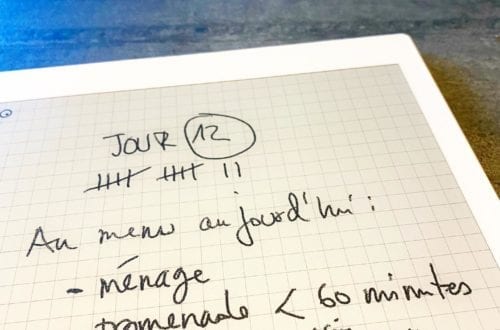 JOUR 12
Au menu aujourd'hui :
- ménage
promenade < 60 minutes